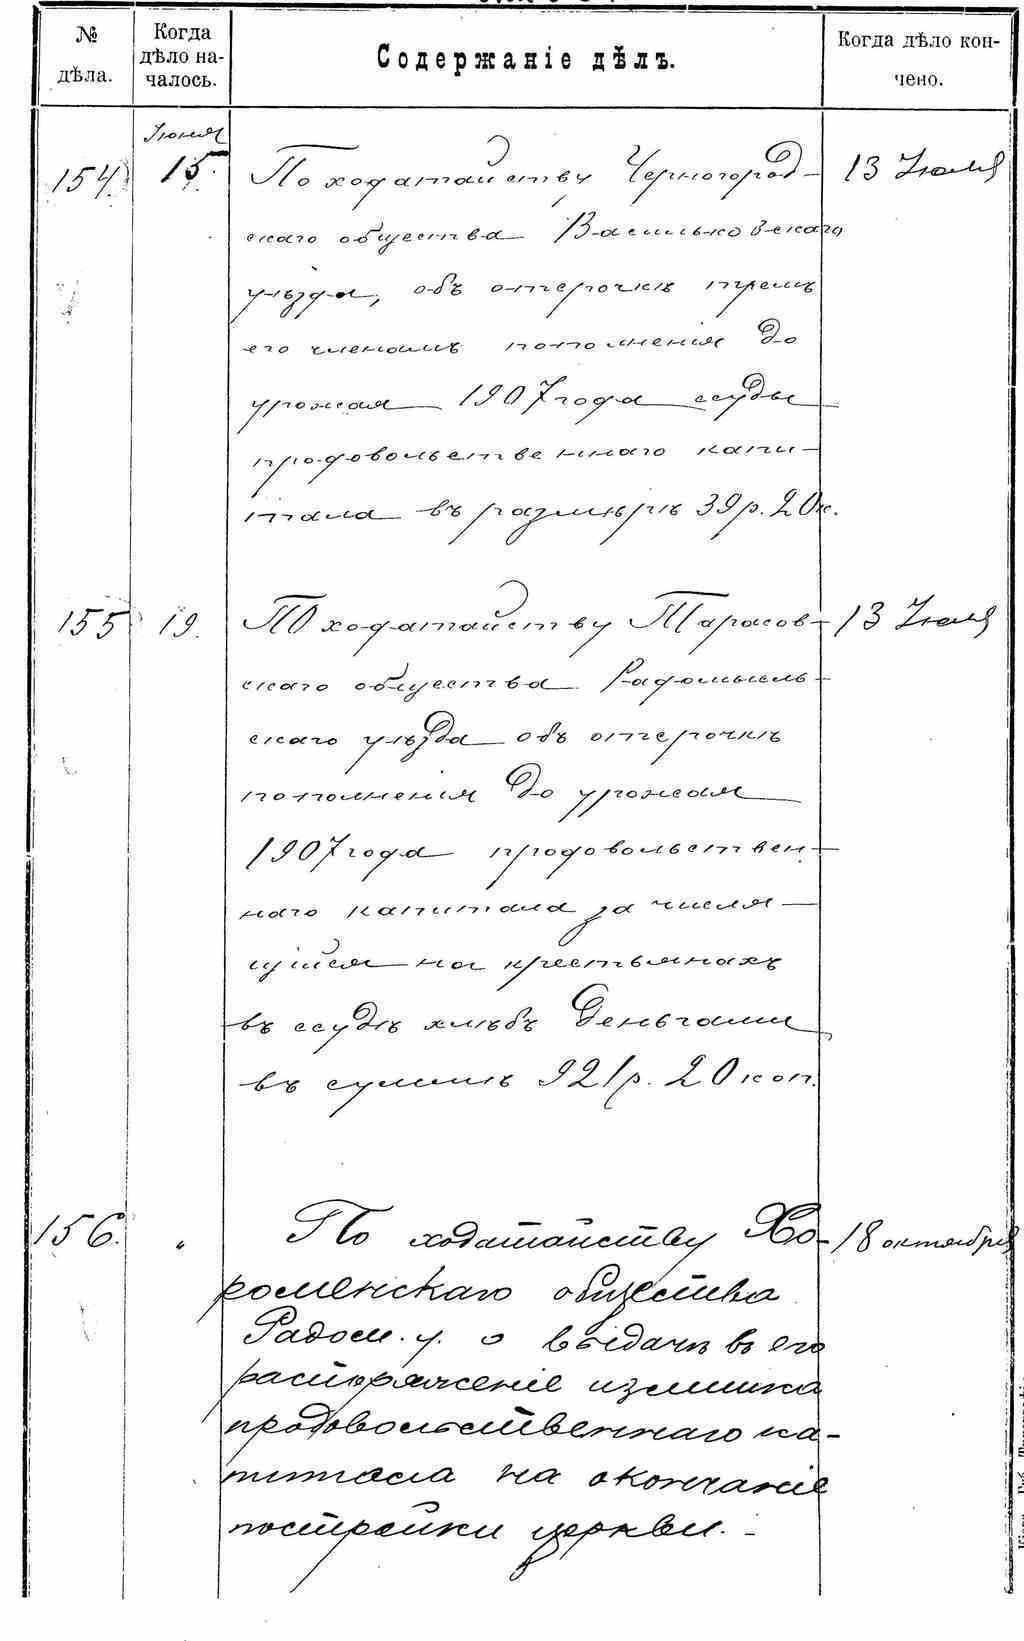 № дѣла.
Когда дѣло началось.
Содержаніе дѣлъ.
Когда дѣло кончено.
Июня
154 15. По ходатайству Черногород- 13 Июля
скаго общества Васильковскаго
уѣзда, объ отсрочкѣ тремъ
его членамъ пополненія до
урожая 1907 года ссуды
продовольственнаго капи-
тала въ размѣрѣ 39 р. 20 к.
155 19. По ходатайству Тарасов- 13 Июля
скаго общества Радомысль-
скаго уѣзда объ отсрочкѣ
пополненія до урожая
1907 года продовольствен-
наго капитала за числя-
щійся на крестьянахъ
въ ссудѣ хлѣбъ деньгами
въ суммѣ 921 р. 20 коп.
156. „ По ходатайству Хо- 18 октября
роменскаго общества
Радом. у. о выдачѣ въ его
распоряженіе излишка
продовольственнаго ка-
питала на окончаніе
постройки церкви.-